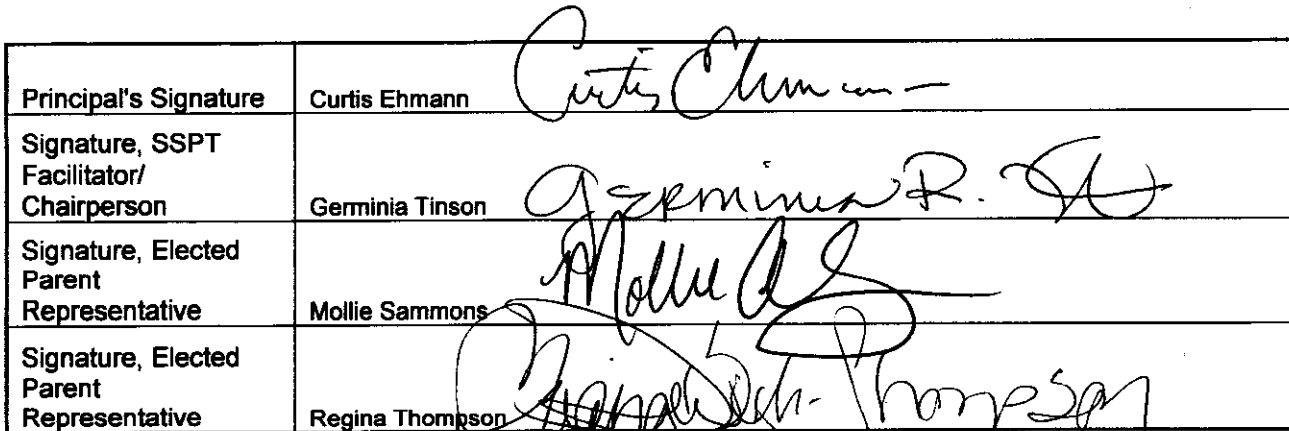 Principal's Signature Curtis Ehmann Curtis Ehmann
Signature, SSPT
Facilitator/
Chairperson Germinia Tinson Germinia R.
Signature, Elected
Parent
Representative Mollie Sammons Mollie
Signature, Elected
Parent
Representative Regina Thompson Regina Thompson